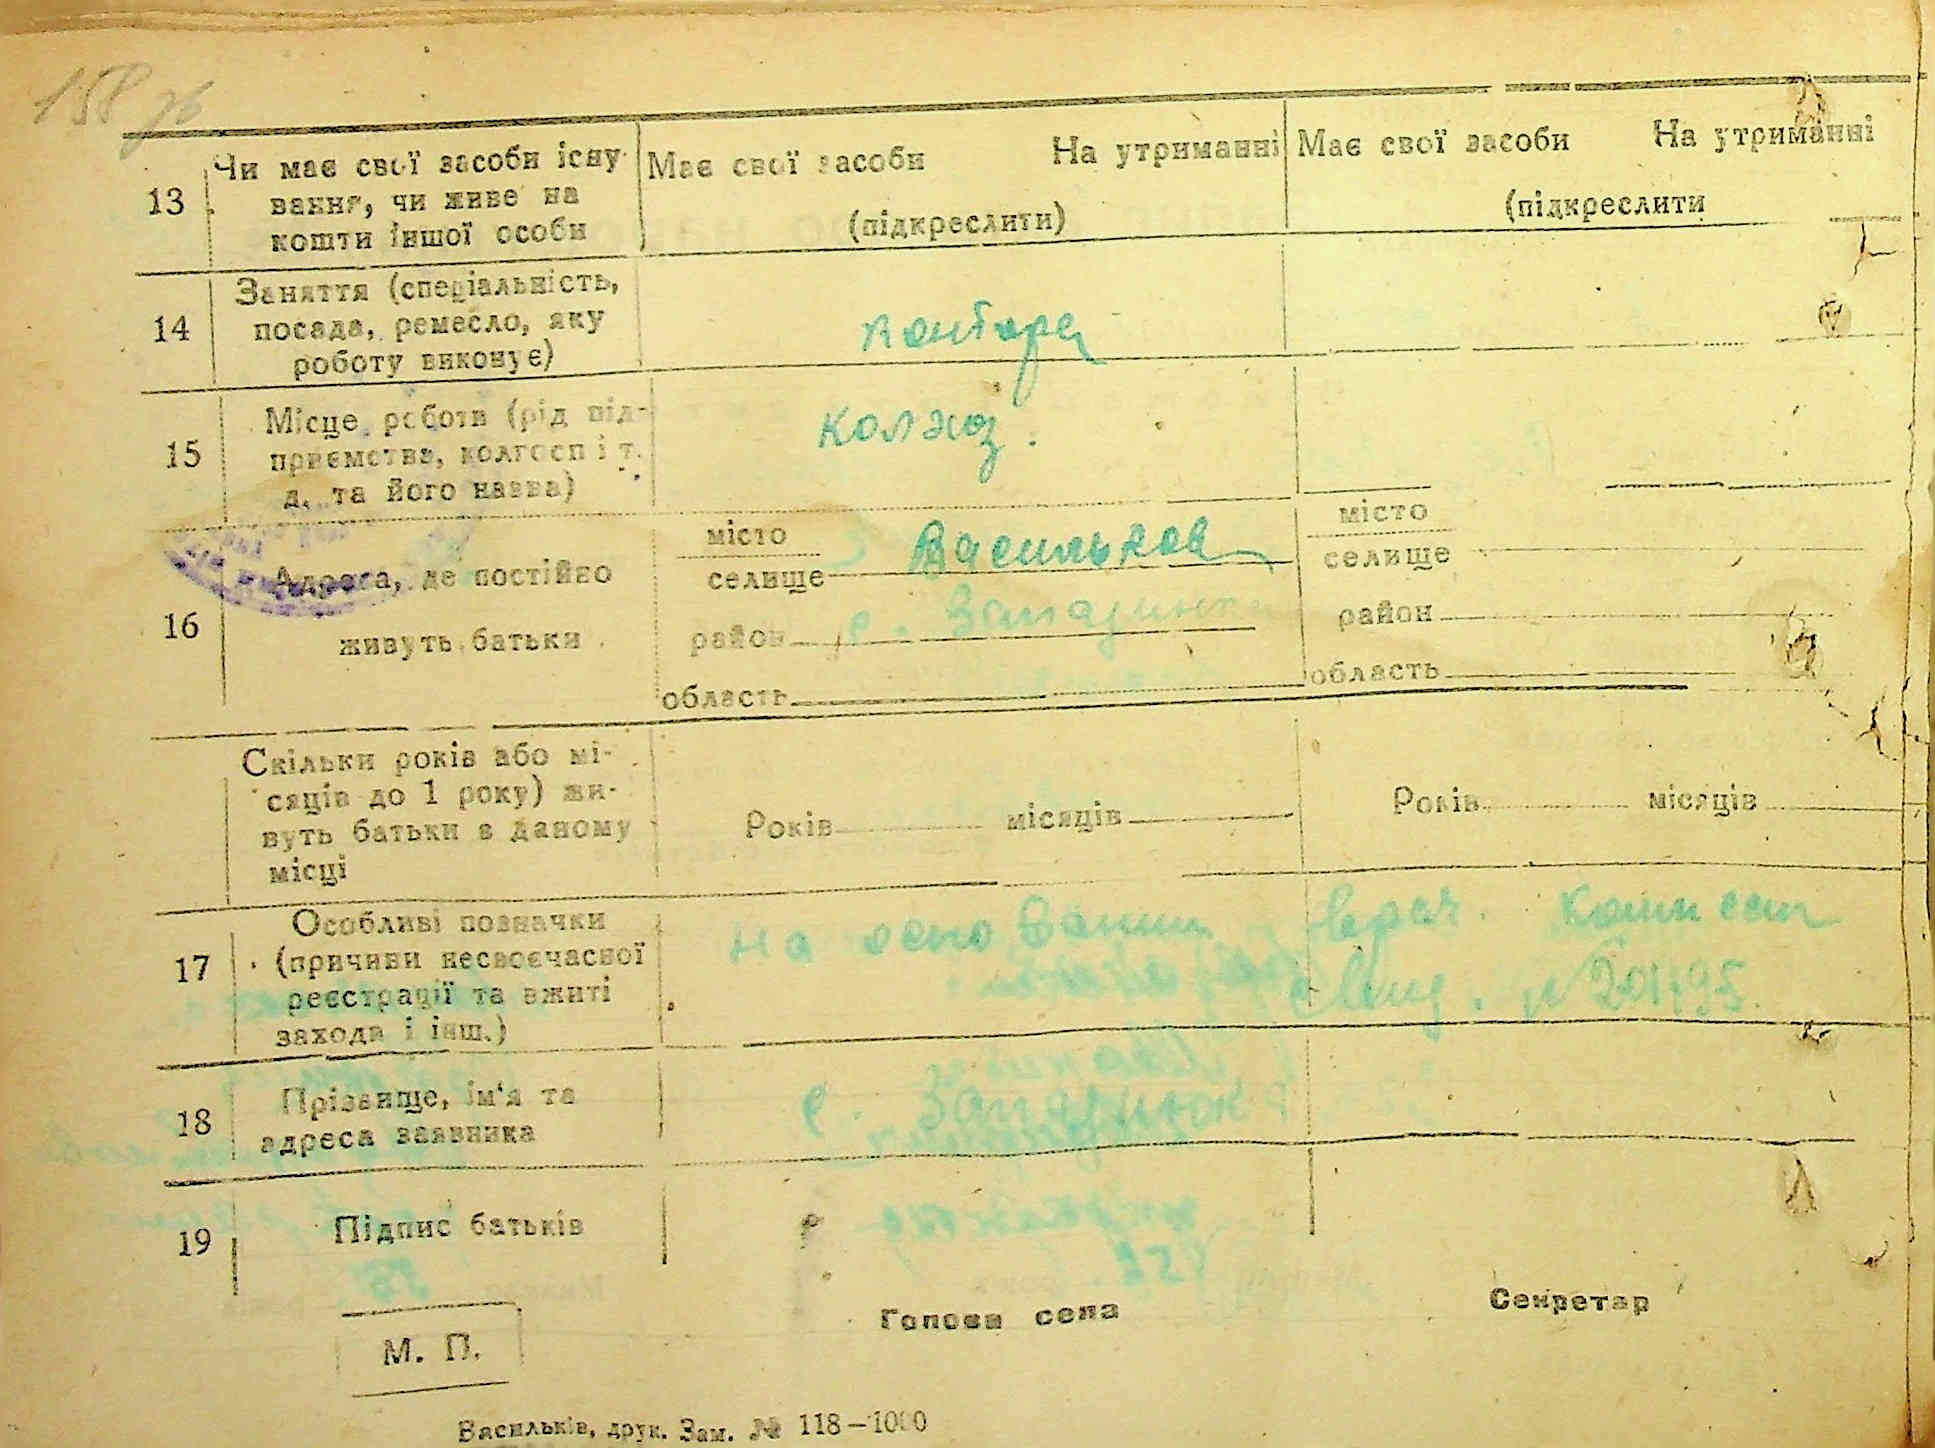 158 зв
13 Чи має свої засоби існу-
вання, чи живе на
кошти іншої особи
Має свої засоби На утриманні
(підкреслити)
Має свої засоби На утриманні
(підкреслити
14 Заняття (спеціальність,
посада, ремесло, яку
роботу виконує)
15 Місце роботи (рід під-
приємства, колгосп і т.
д. та його назва)
колхоз.
16 Адреса, де постійно
живуть батьки
місто
селище Васильков
район с. Западинка
область
місто
селище
район
область
Скільки років або мі-
сяців до 1 року) жи-
вуть батьки в даному
місці
Років місяців
Років місяців
17 Особливі позначки
(причини несвоєчасної
реєстрації та вжиті
заходи і інш.)
на основании врач. комисии
свид. № 201195.
18 Прізвище, ім'я та
адреса заявника
с. Западинка
19 Підпис батьків
Голова села
Секретар
М. П.
Васильків, друк. Зам. № 118—1000